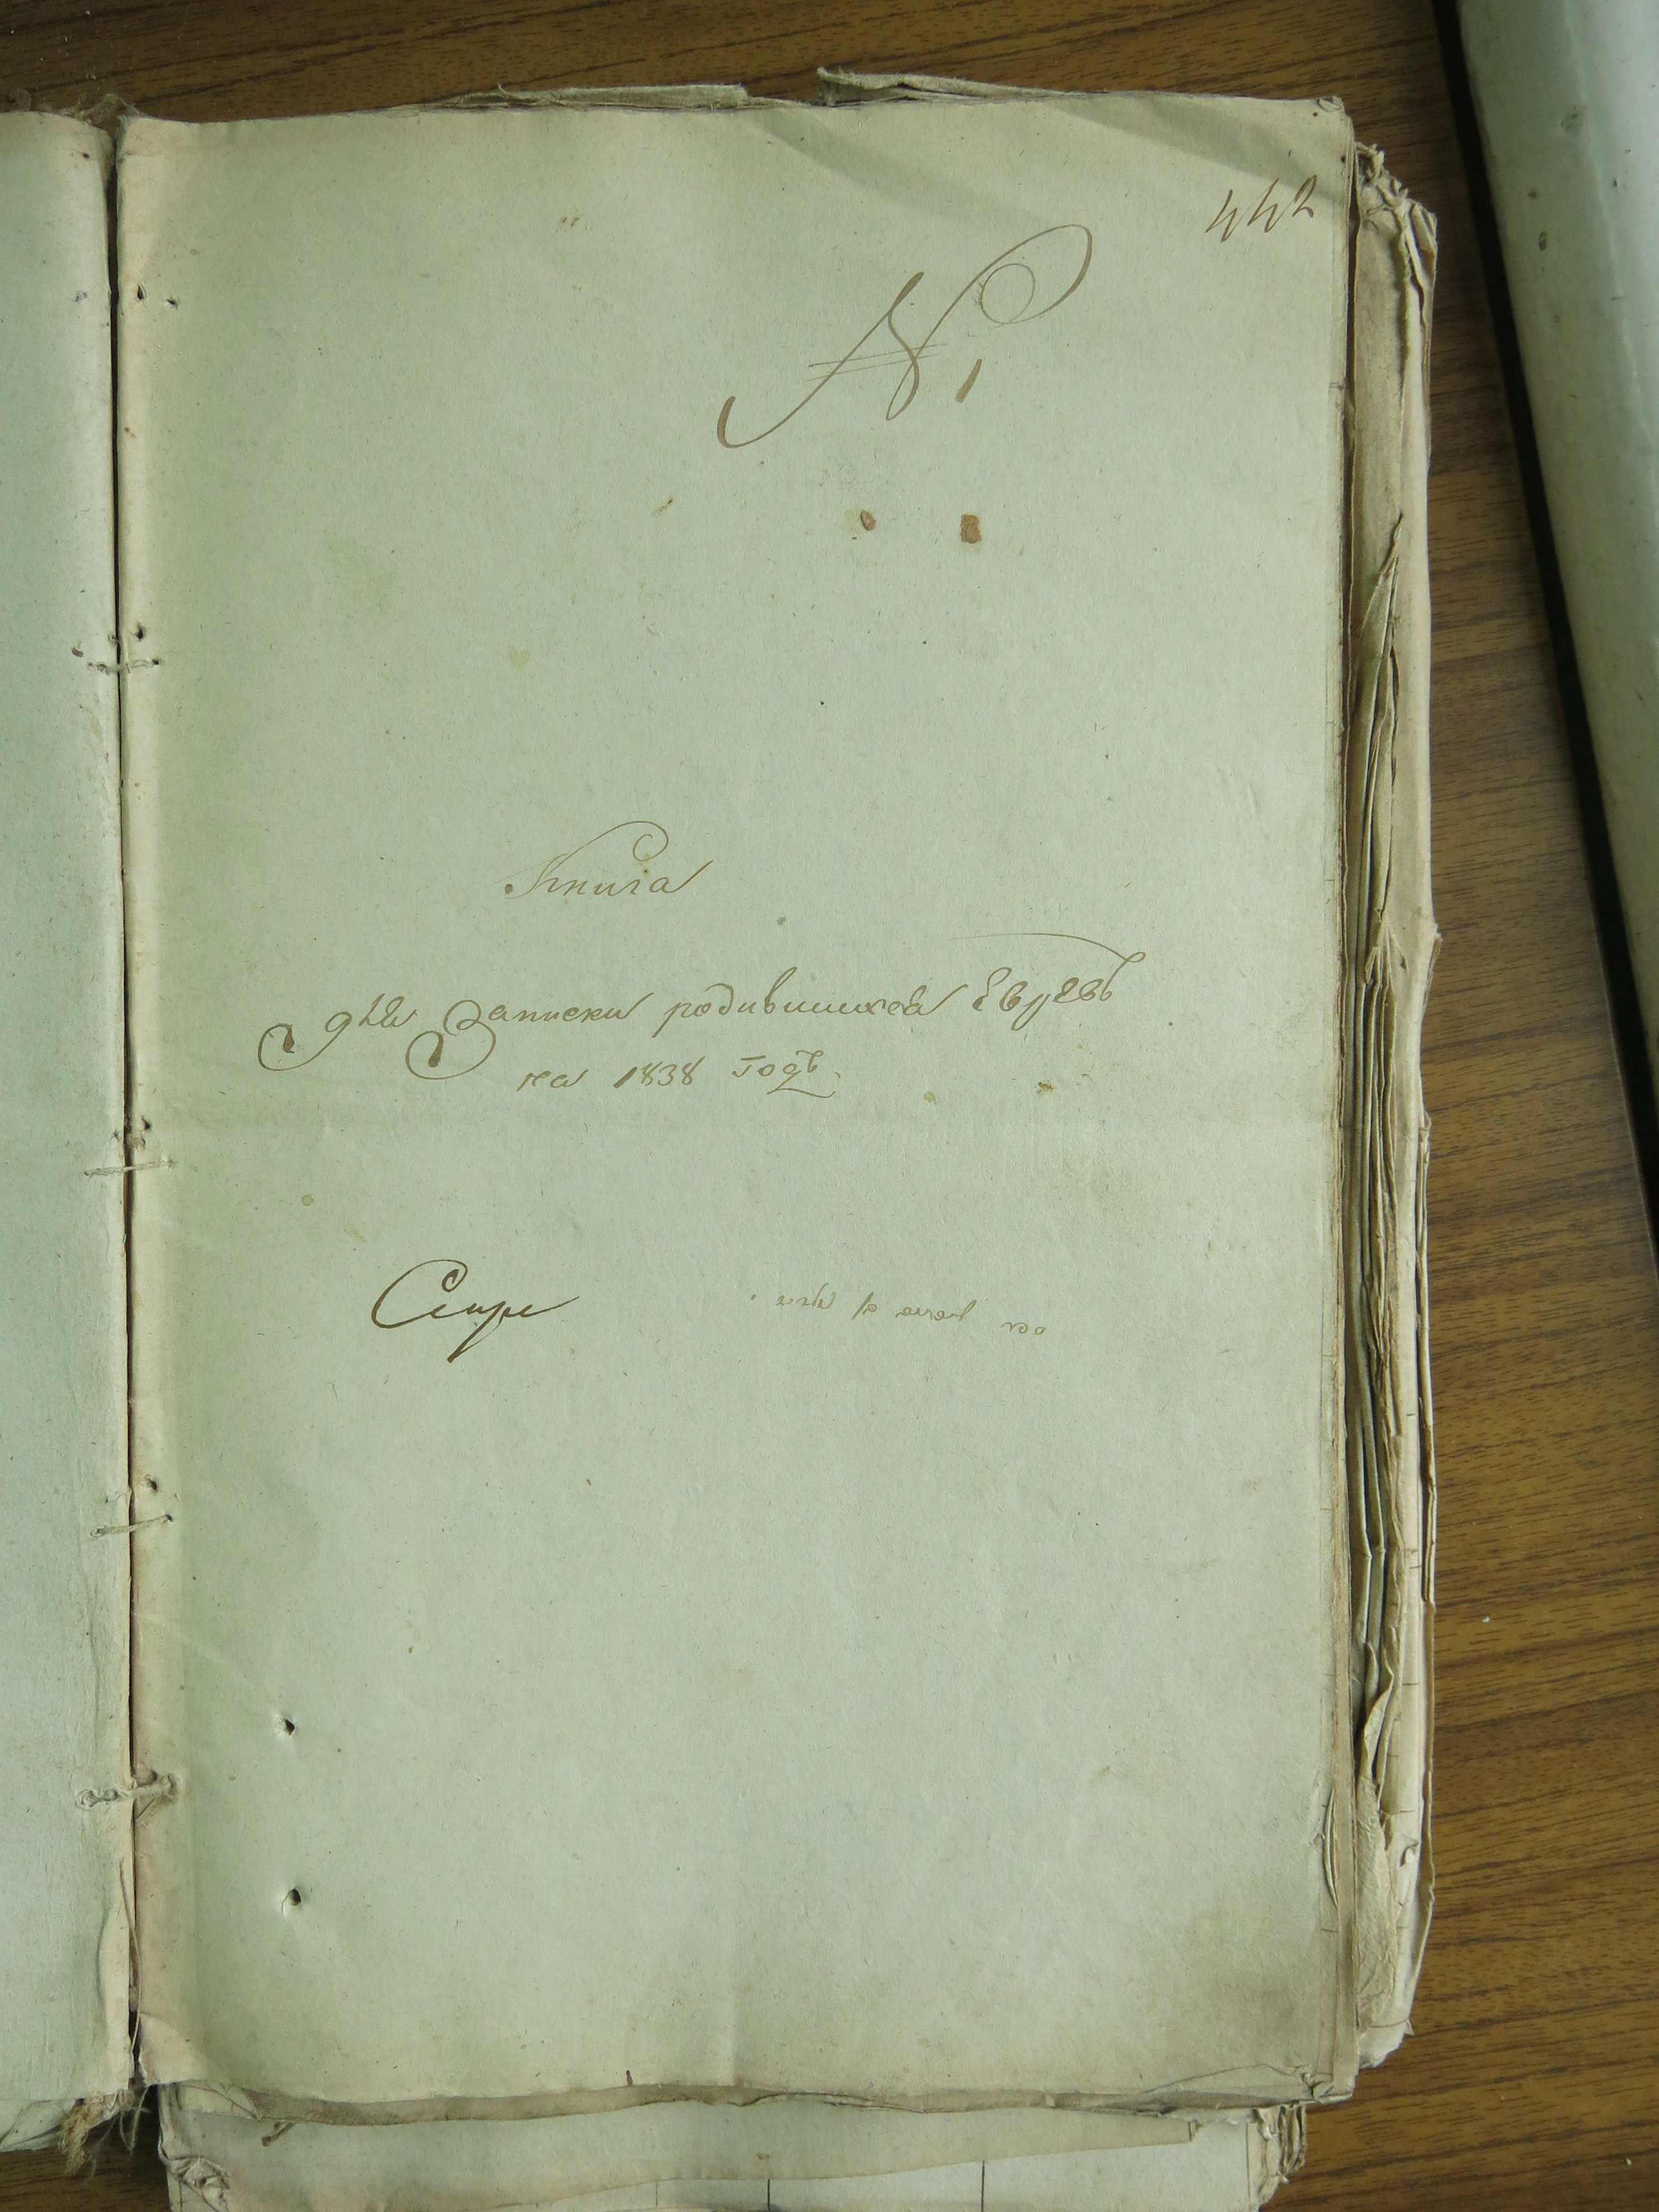 442
№ 1
Книга
для Записки родившихся Евреевъ
на 1838 годъ.